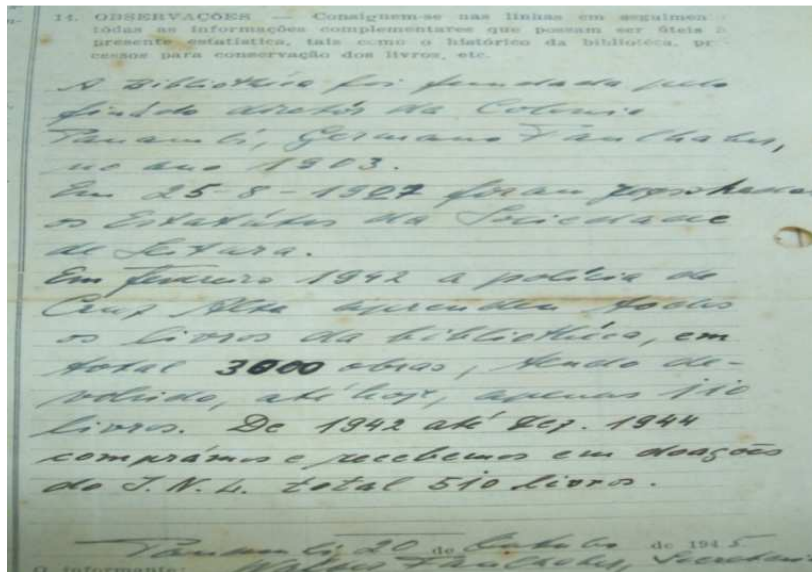 14. OBSERVAÇÕES — Consignem-se nas linhas em seguimen
tôdas as informações complementares que possam ser úteis à
presente estatística, tais como o histórico da bibliotéca, pr
cessos para conservação dos livros, etc.
A Bibliothéca foi fundada pelo
finádo diretór da Colonia
Panambí, Germano Faulhaber,
no ano 1903.
Em 25-8-1927 foram
os Estatútos da Sociedade
de Leitura.
Em fevereiro 1942 a polícia de
Cruz Alta aprendeu todos
os livros da bibliothéca, em
total 3000 obras, tendo de-
volvido, até hoje, apenas 110
livros. De 1942 até Dez. 1944
comprámos e recebemos em doações
do I.N.L. total 510 livros.
Panambí, 20 de Outubro de 1945
O informante: Faulhaber, Secretário